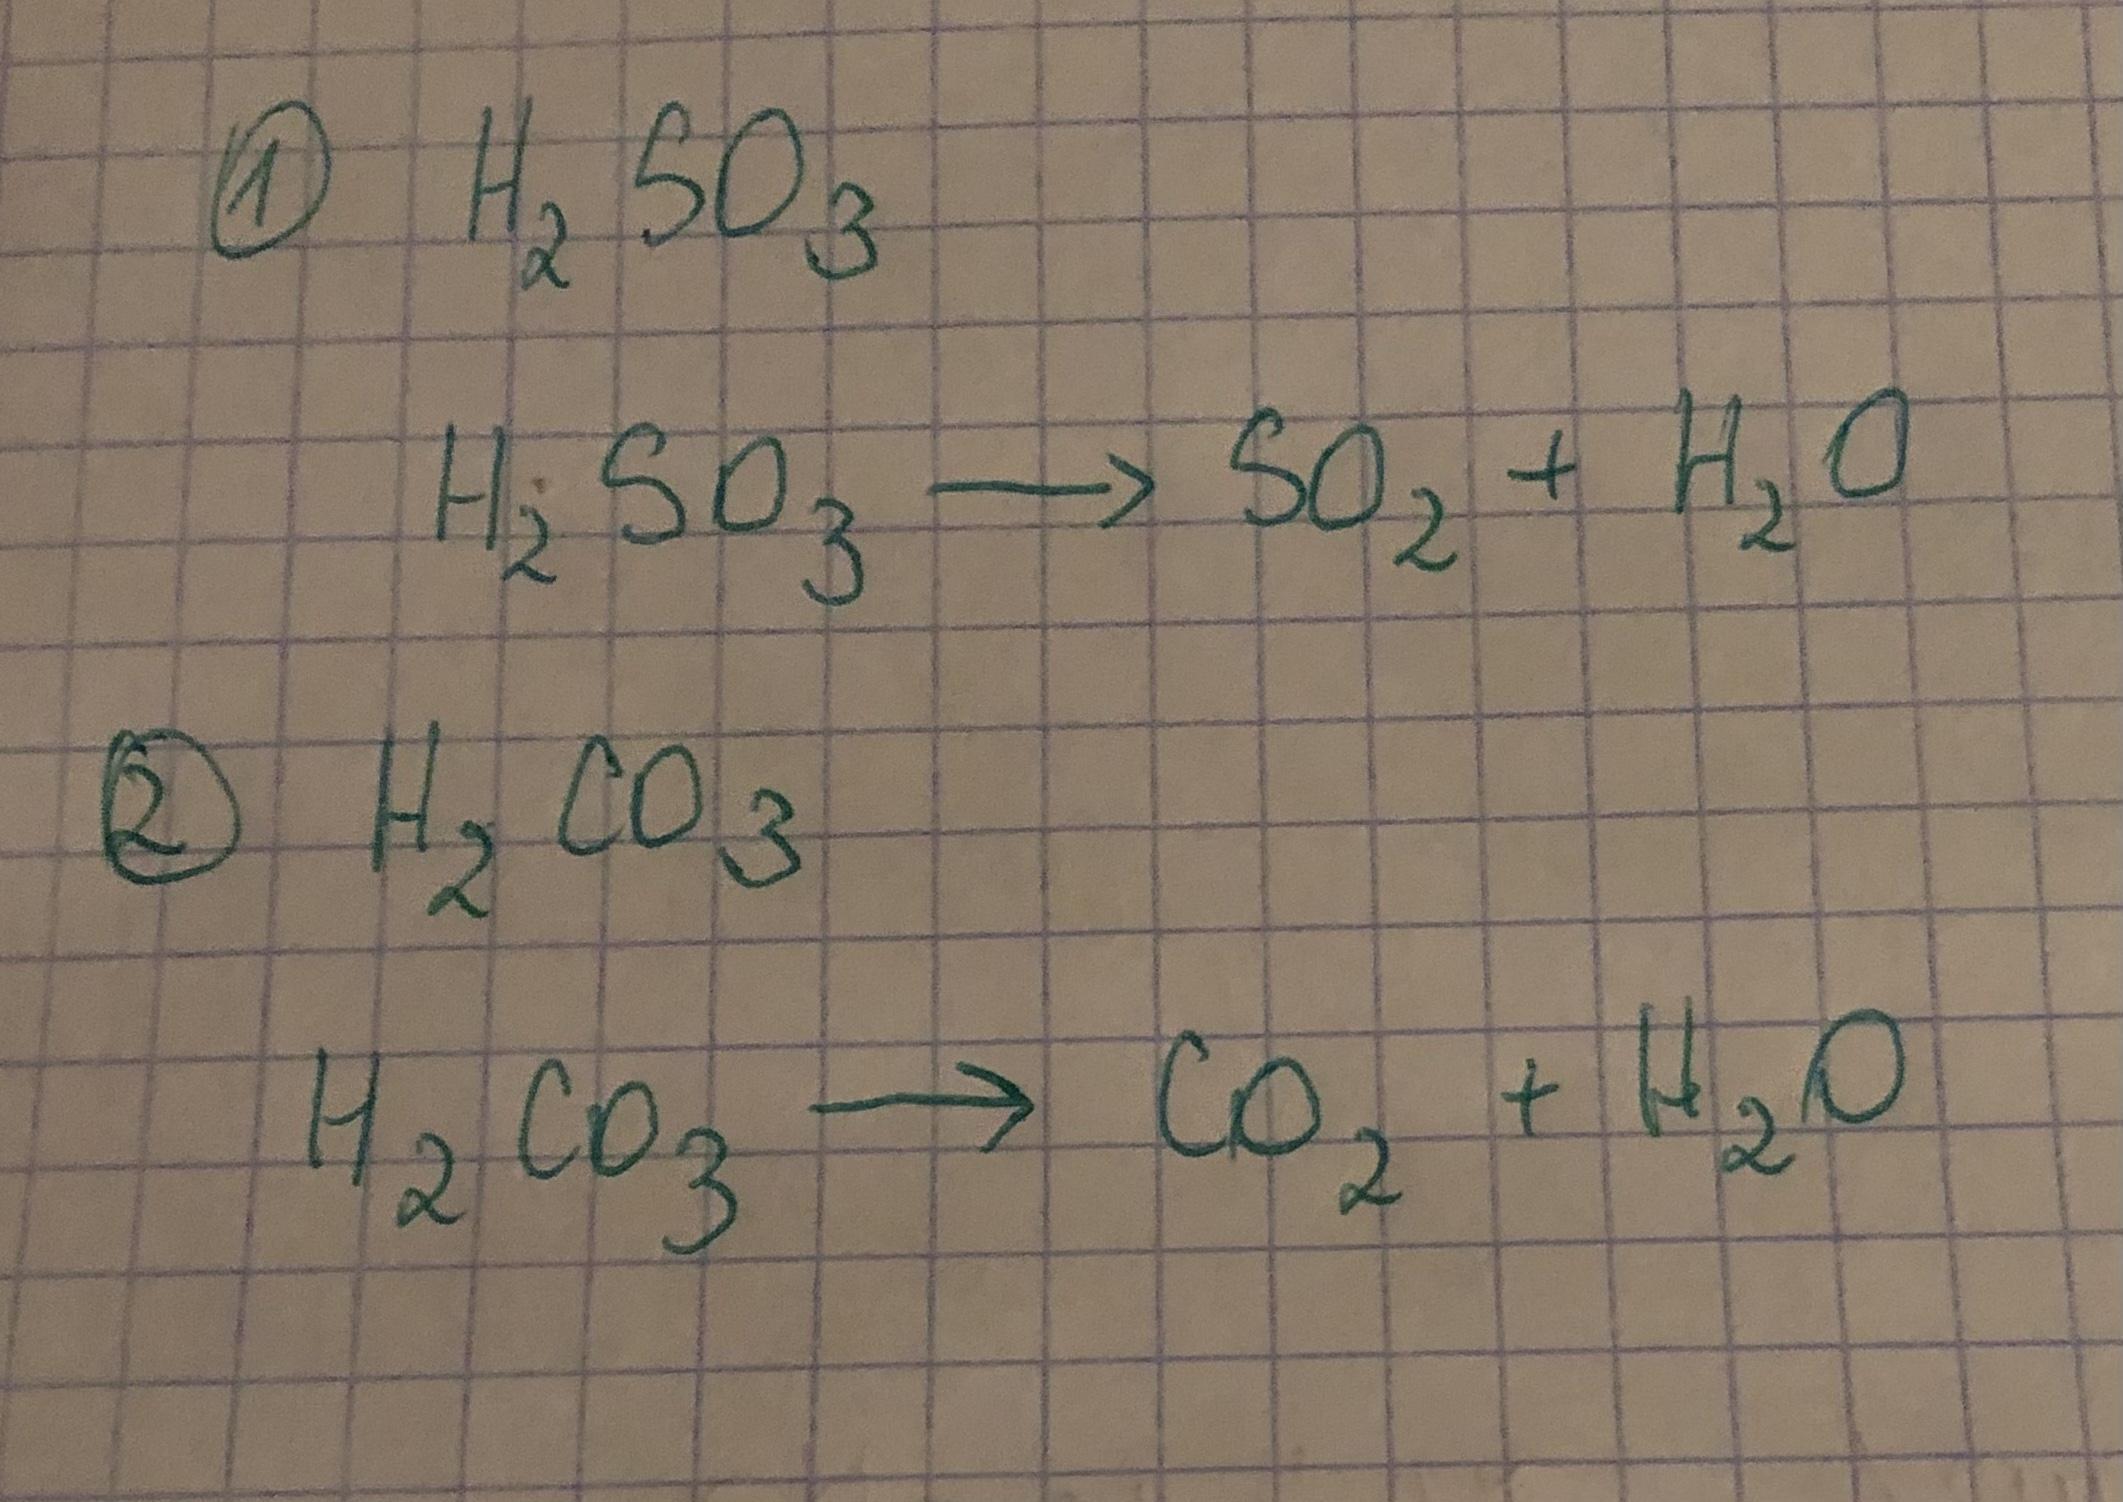 ① H₂SO₃
H₂SO₃ → SO₂ + H₂O
② H₂CO₃
H₂CO₃ → CO₂ + H₂O